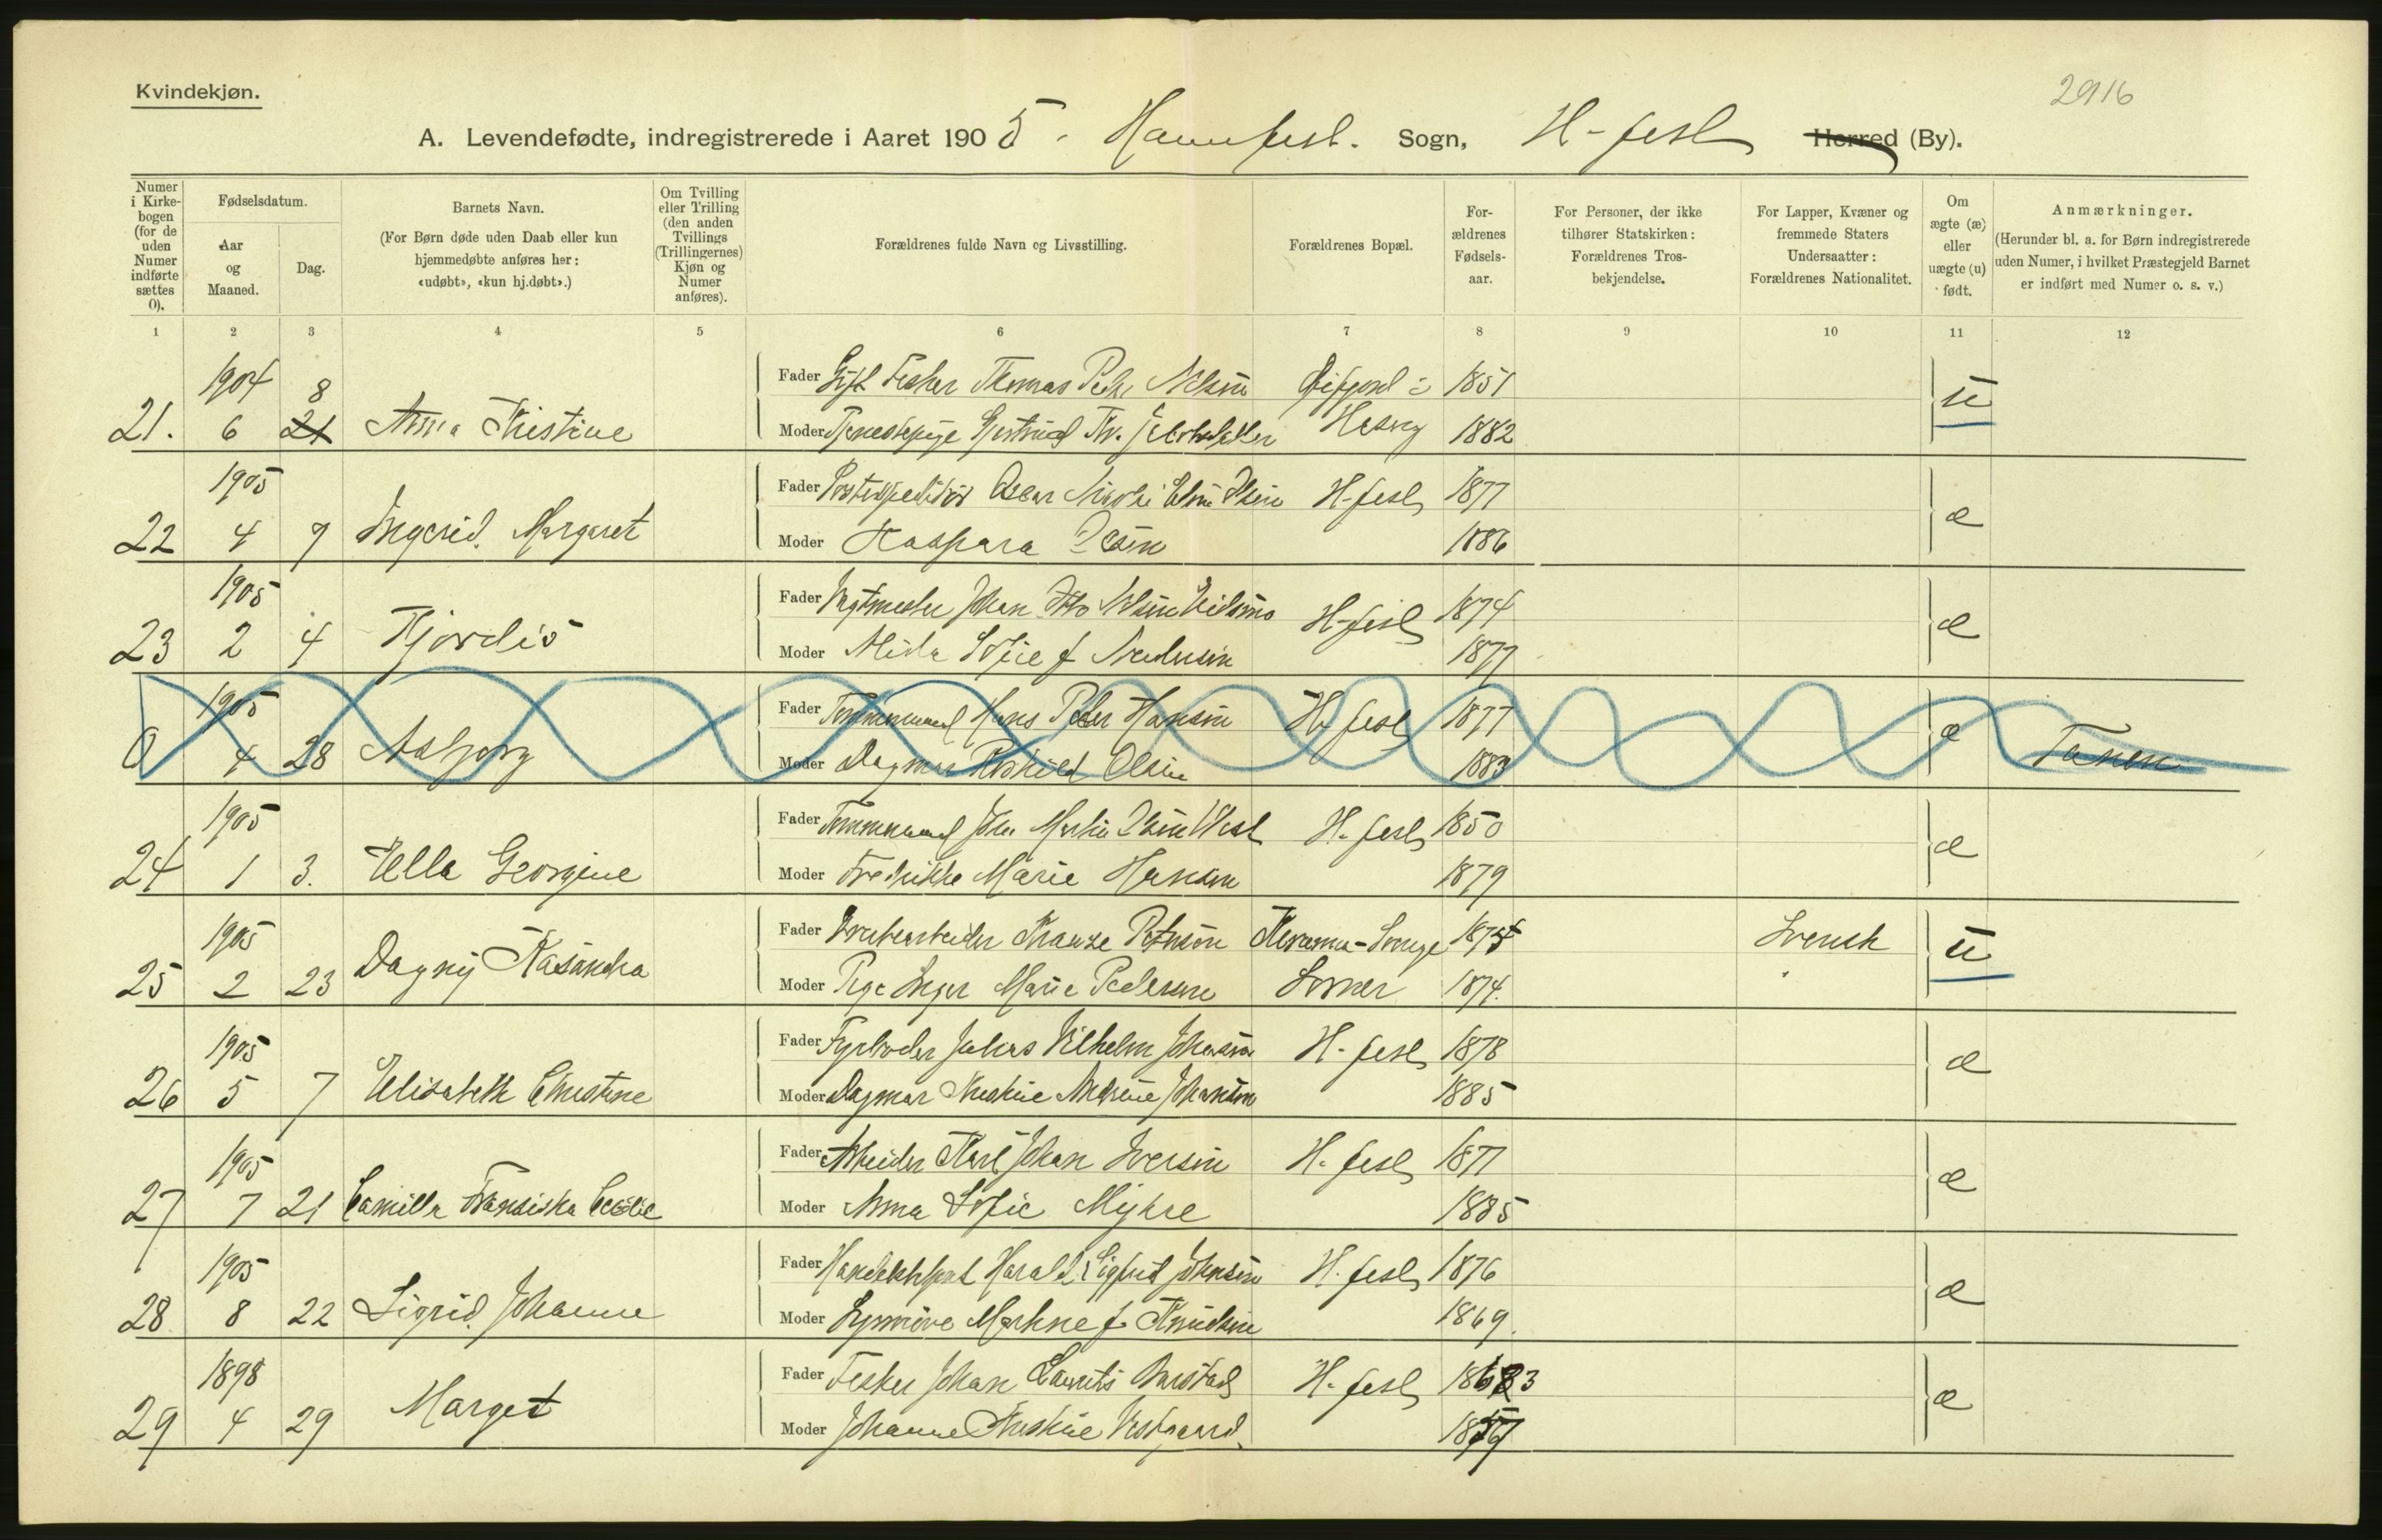 Kvindekjøn.
2916
A. Levendefødte, indregistrerede i Aaret 1905. Hammfest. Sogn, H-fest Herred (By).
Numer i Kirkebogen (for de uden Numer indførte sættes 0).
Fødselsdatum.
Aar og Maaned.
Dag.
Barnets Navn.
(For Børn døde uden Daab eller kun hjemmedøbte anføres her: «udøbt», «kun hj.døbt».)
Om Tvilling eller Trilling (den anden Tvillings (Trillingernes) Kjøn og Numer anføres).
Forældrenes fulde Navn og Livsstilling.
Forældrenes Bopæl.
Forældrenes Fødselsaar.
For Personer, der ikke tilhører Statskirken: Forældrenes Trosbekjendelse.
For Lapper, Kvæner og fremmede Staters Undersaatter: Forældrenes Nationalitet.
Om ægte (æ) eller uægte (u) født.
Anmærkninger.
(Herunder bl. a. for Børn indregistrerede uden Numer, i hvilket Præstegjeld Barnet er indført med Numer o. s. v.)
1 2 3 4 5 6 7 8 9 10 11 12
1904 8 Fader Gift Fisker Thomas Peder Nilsen 1851 u
21. 6 21 Anna Kristine Moder Tjenestepige Gjertrud Hasvig 1882
1905 Fader Postexpeditør Oscar Nicolai Olsen H-fest 1877 æ
22 4 9 Ingerid Margaret Moder Kaspara Olsen 1886
1905 Fader Johan Otto Nilsen H-fest 1874 æ
23 2 4 Hjordis Moder Sofie f 1877
1905 Fader Tømmermand Hans Peder Hansen H. fest 1877 æ
0 4 28 Asbjørg Moder Dagmar Olsen 1883 Tanen
1905 Fader Tømmermand Martin H. fest 1850 æ
24 1 3. Ella Georgine Moder Fredrikke Marie Hansen 1879
1905 Fader Grubearbeider Kiruna-Sverige Svensk u
25 2 23 Dagny Kasandra Moder Pige Inger Marie Pedersen 1874.
1905 Fader Fyrbøder Vilhelm Johansen H. fest 1878 æ
26 5 7 Elisabeth Christine Moder Dagmar Kristine Johansen 1885
1905 Fader Arbeider Karl Johan Iversen H. fest 1877 æ
27 7 21 Camilla Fransiska Moder Anna Sofie Myhre 1885
1905 Fader Harald Sigfrid Johnsen H. fest 1876 æ
28 8 22 Sigrid Johanne Moder f. Knudsen 1869.
1898 Fader Fisker Johan Laurits H. fest æ
29 4 29 Marget Moder Johanne Kristine Vestgaard